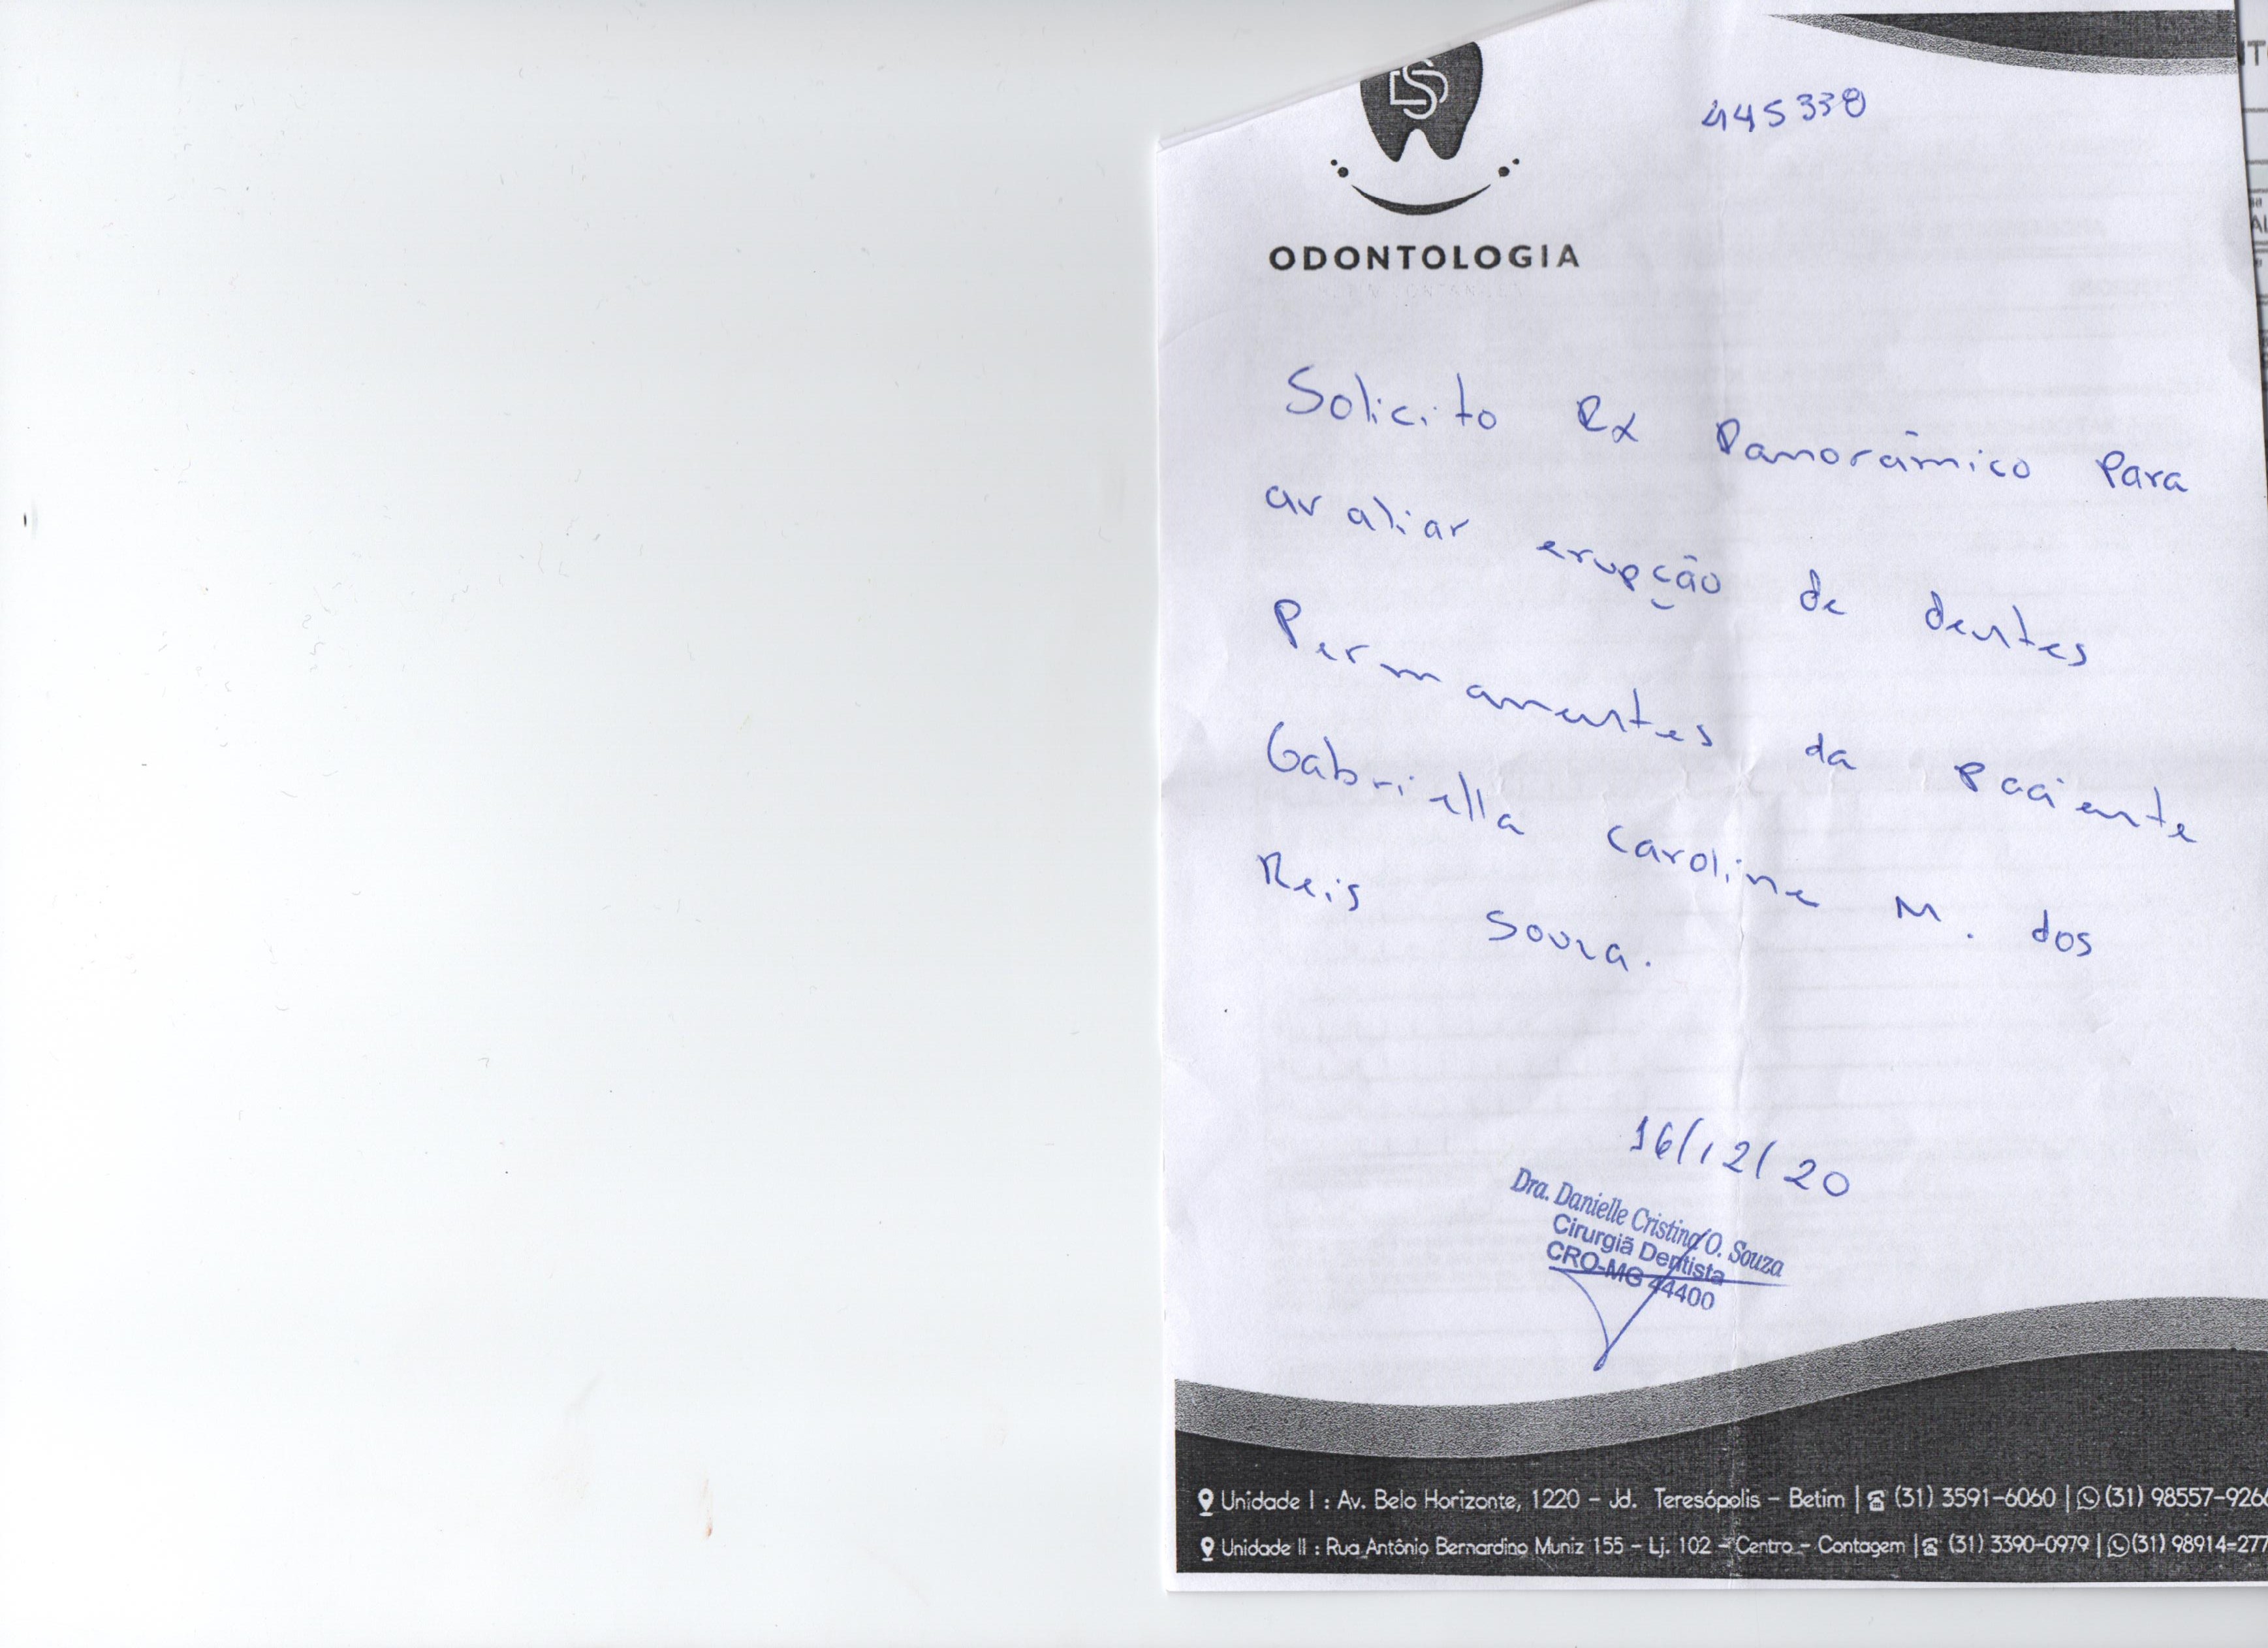 DS
445338
ODONTOLOGIA
Solicito Rx Panorâmico Para
avaliar erupção de dentes
Permanentes da paciente
Gabriella Caroline M. dos
Reis Souza.
16/12/20
Dra. Danielle Cristina O. Souza
Cirurgiã Dentista
CRO-MG 44400
Unidade I : Av. Belo Horizonte, 1220 - Jd. Teresópolis - Betim | (31) 3591-6060 | (31) 98557-926
Unidade II : Rua Antônio Bernardino Muniz 155 - Lj. 102 - Centro - Contagem | (31) 3390-0979 | (31) 98914-277